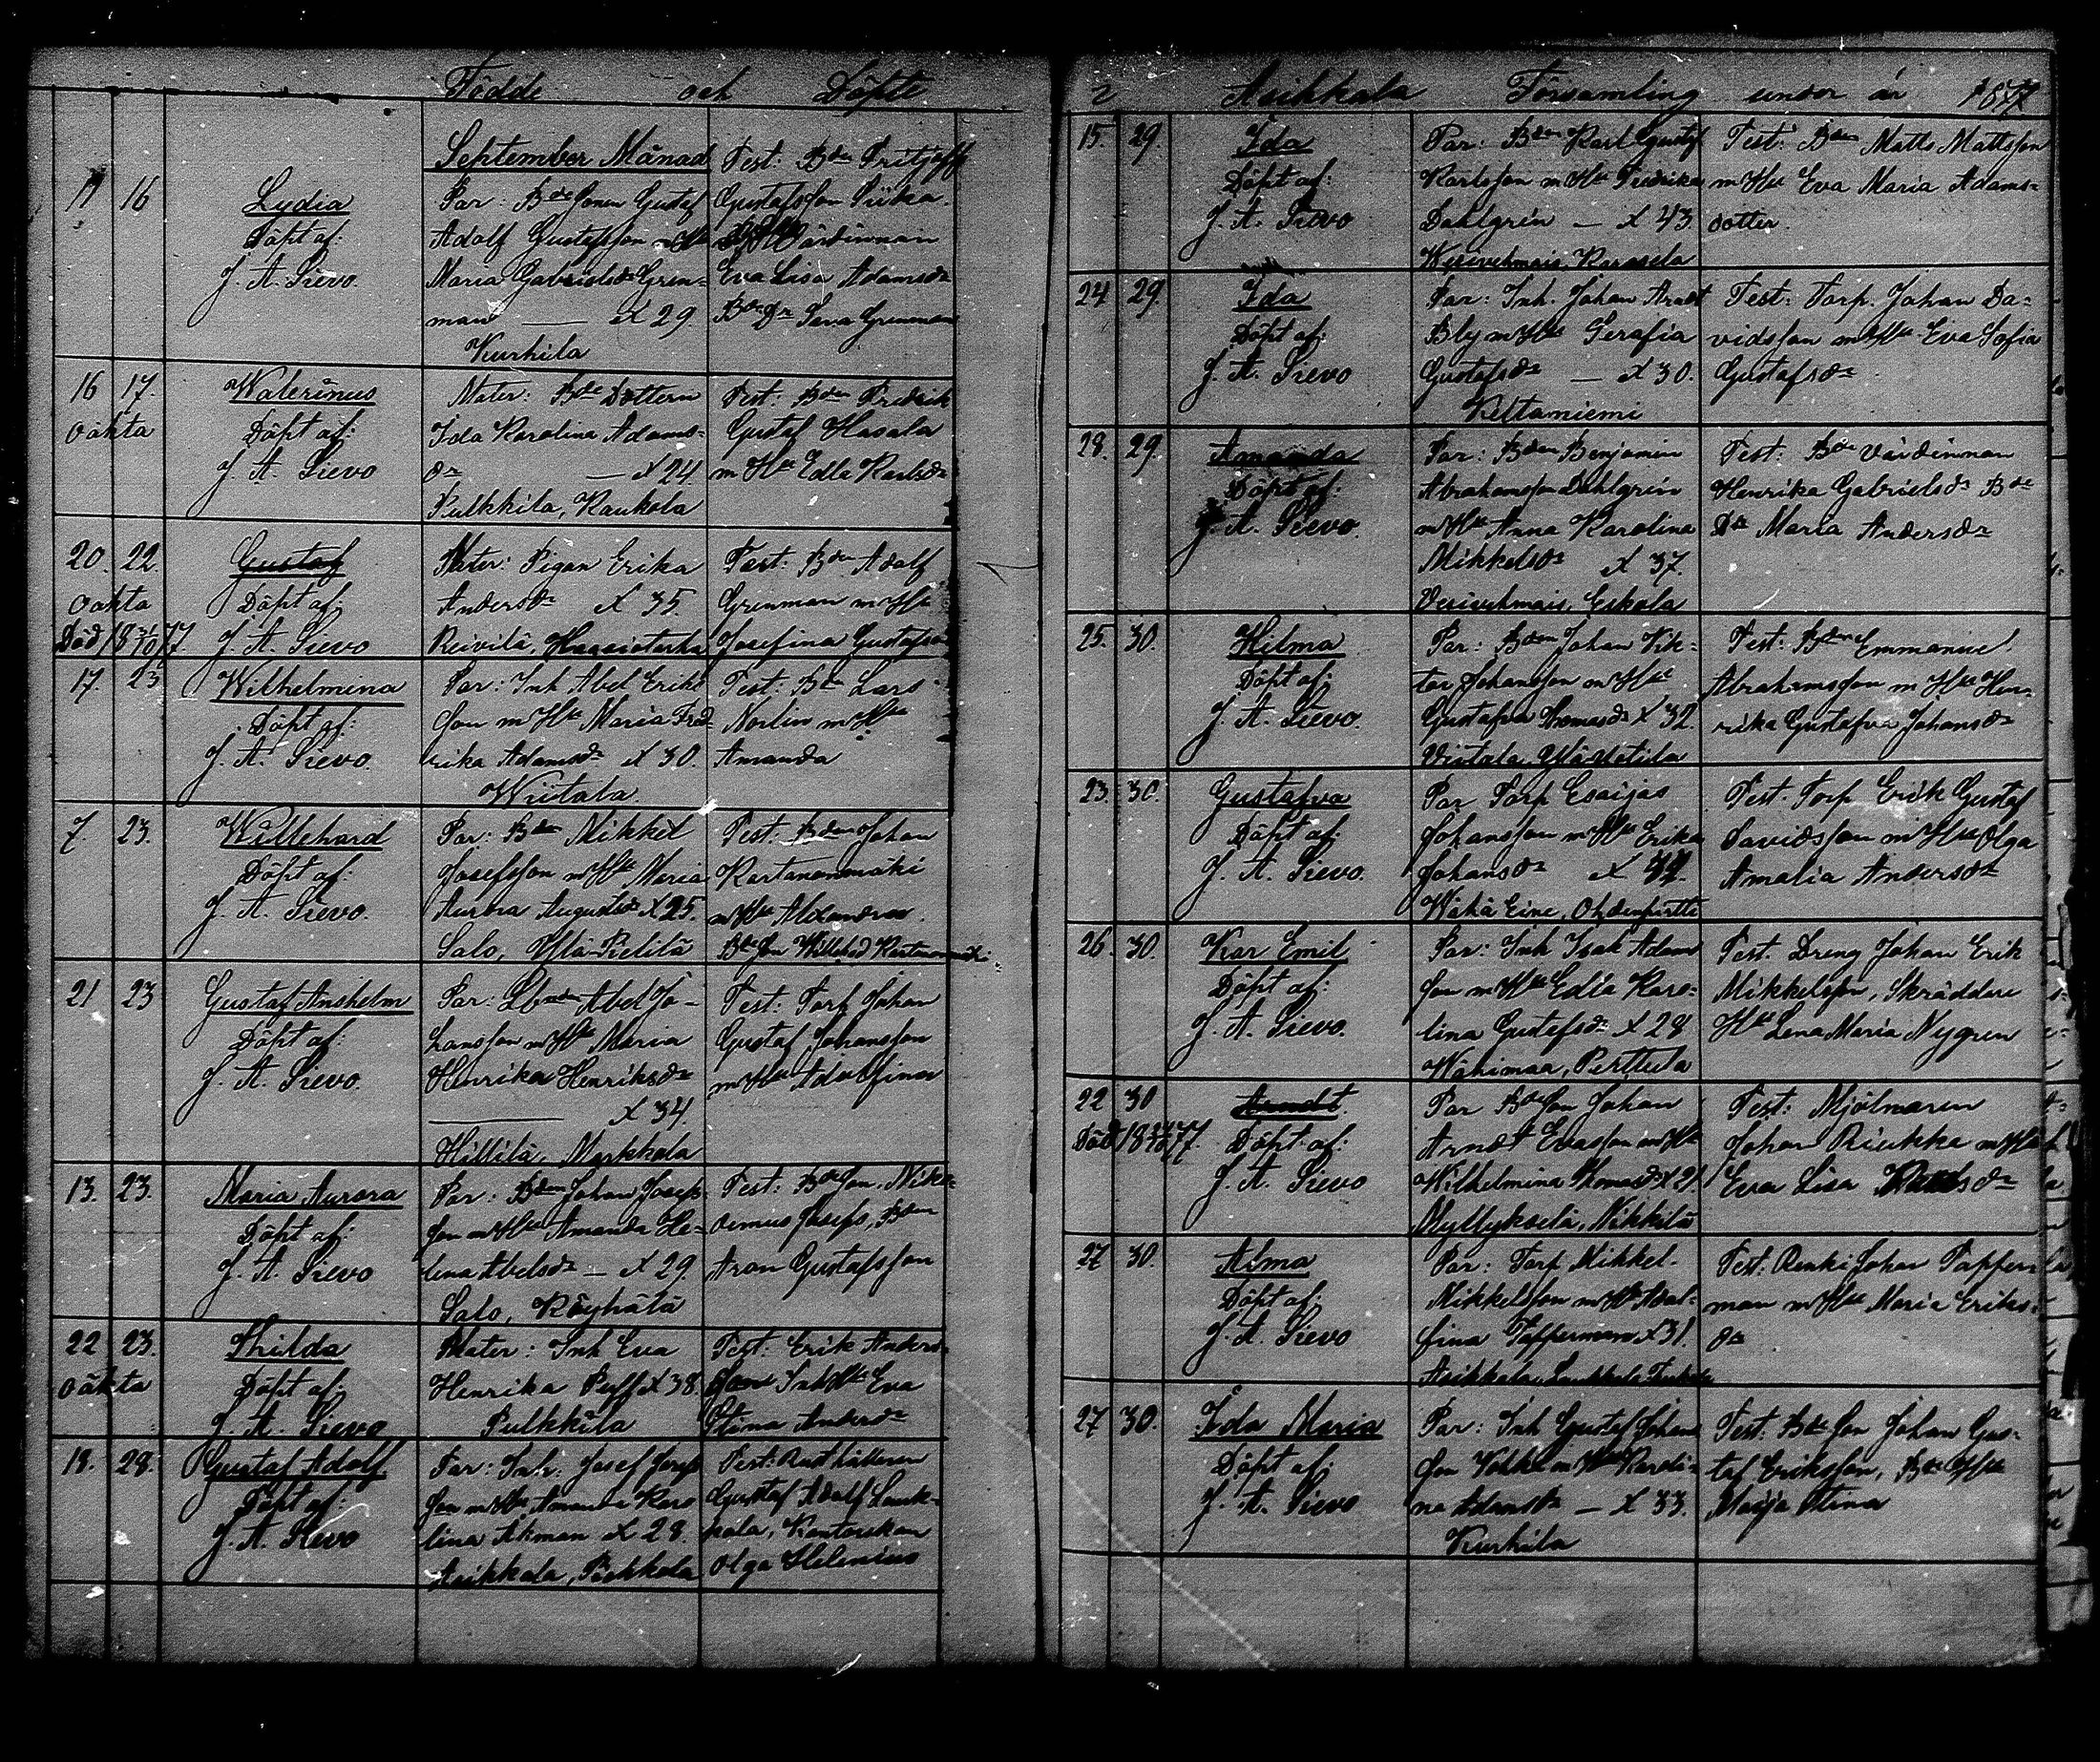 Födde och Döpte
September Månad
17 16
Lydia
Döpt af:
J. A. Sievo.
Par: Bde Sonen Gustaf
Adolf Gustafsson m Hu
Maria Gabrielsdr Gren-
man — x 29.
Kurhila
Test: Bden Fritjoff
Gustafsson Siika.
Värdinnan
Eva Lisa Adamsdr
Bde Dr Greneman
16 17.
oäkta
Walerinus
Döpt af:
J. A. Sievo
Mater: Bde Dottern
Ida Karolina Adams-
dr — x 24.
Pulkkila, Kaukola
Test: Bden Fredrik
Gustaf Hasala
m Hu Edla Karlsdr
20. 22.
oäkta
Död 18 77.
Gustaf
Döpt af:
J. A. Sievo
Mater: Pigan Erika
Andersdr x 35.
Reivilä,
Test: Bden Adolf
Grenman m Hu
Josefina Gustafsdr
17. 23
Wilhelmina
Döpt af:
J. A. Sievo.
Par: Inh Abel Eriks
son m Hu Maria Fred-
rika Adamsdr x 30.
Wiitala.
Test: Bde Lars
Norlin m Hu
Amanda
7. 23.
Willehard
Döpt af:
J. A. Sievo.
Par: Bden Mikkel
Josefsson m Hu Maria
Aurora Augustsdr x 25.
Salo, Ylä-Pietilä
Test: Bden Johan
Kartanonmäki
m Hu Alexandra.
Bde Son Willehad
21 23
Gustaf Anshelm
Döpt af:
J. A. Sievo.
Par: Abel Jo-
hansson m Hu Maria
Henrika Henriksdr
— x 34.
Hillilä, Markkola
Test: Torp Johan
Gustaf Johansson
m Hu Adolfina
13. 23.
Maria Aurora
Döpt af:
J. A. Sievo
Par: Bden Johan Josefs-
son m Hu Amanda He-
lena Abelsdr — x 29.
Salo, Röyhälä
Test: Bde Son. Niko-
demus Josefs, Bden
Aron Gustafsson
22 23.
oäkta
Hilda
Döpt af:
J. A. Sievo
Mater: Inh Eva
Henrika Puff x 38.
Pulkkila
Test: Erik Anders-
son Inh Hu Eva
Stina Andersdr
18. 28.
Gustaf Adolf.
Döpt af:
J. A. Sievo
Par: Inh. Josef Josefs
son m Hu Amanda Karo
lina Akman x 28.
Asikkala, Pirkkola
Test: Rusthållaren
Gustaf Adolf Lauk-
kala,
Olga Helenius
i Asikkala Församling under år 1877
15. 29.
Ida
Döpt af:
J. A. Sievo
Par: Bden Karl Gustaf
Karlsson m Hu Fredrika
Dahlgrén — x 43.
Wesivehmais, Karasela
Test: Bden Matts Mattsson
m Hu Eva Maria Adams-
dotter.
24 29.
Ida
Döpt af:
J. A. Sievo
Par: Inh. Johan Arndt
Bly m Hu Serafia
Gustafsdr — x 30.
Keltaniemi
Test: Torp. Johan Da-
vidsson m Hu Eva Sofia
Gustafsdr.
28. 29.
Amanda
Döpt af:
J. A. Sievo.
Par: Bden Benjamin
Abrahamsson Dahlgrén
m Hu Anna Karolina
Mikkelsdr x 37.
Vesivehmais, Eskola
Test: Bde Värdinnan
Henrika Gabrielsdr Bde
Dr Maria Andersdr
25. 30.
Hilma
Döpt af:
J. A. Sievo.
Par: Bden Johan Vik-
tor Johansson m Hu
Gustafva Thomasdr x 32.
Viitala,
Test: Bden Emmanuel
Abrahamsson m Hu Hen-
rika Gustafva Johansdr
23. 30.
Gustafva
Döpt af:
J. A. Sievo.
Par Torp Esaijas
Johansson m Hu Erika
Johansdr x
Wähä Eine, Ohdenpirtti
Test. Torp Erik Gustaf
Davidsson m Hu Olga
Amalia Andersdr
26. 30.
Kar Emil
Döpt af:
J. A. Sievo.
Par: Inh Isak Adam
son m Hu Edla Karo-
lina Gustafsdr x 28
Wähimaa, Perttula
Test. Dreng Johan Erik
Mikkelsson, Skräddare
Hu Lena Maria Nygren
22 30
Död 18 77.
Arndt.
Döpt af:
J. A. Sievo
Par Bde Son Johan
Arndt Evasson m Hu
Wilhelmina Thomasdr x 21.
Myllykselä, Nikkilä
Test: Mjölnaren
Johan Riukka m Hu
Eva Lisa
27 30.
Alma
Döpt af:
J. A. Sievo
Par: Torp Mikkel
Mikkelsson m Hu Adol-
fina Tapperman x 31.
Asikkala,
Test: Renki Johan Tapper-
man m Hu Maria Eriks-
dr
27 30.
Ida Maria
Döpt af:
J. A. Sievo
Par: Inh Gustaf Johans
son m Hu Karoli-
na Adamsdr — x 33.
Kurhila
Test. Bde Son Johan Gus-
taf Eriksson, Bde Hu
Maija Stina